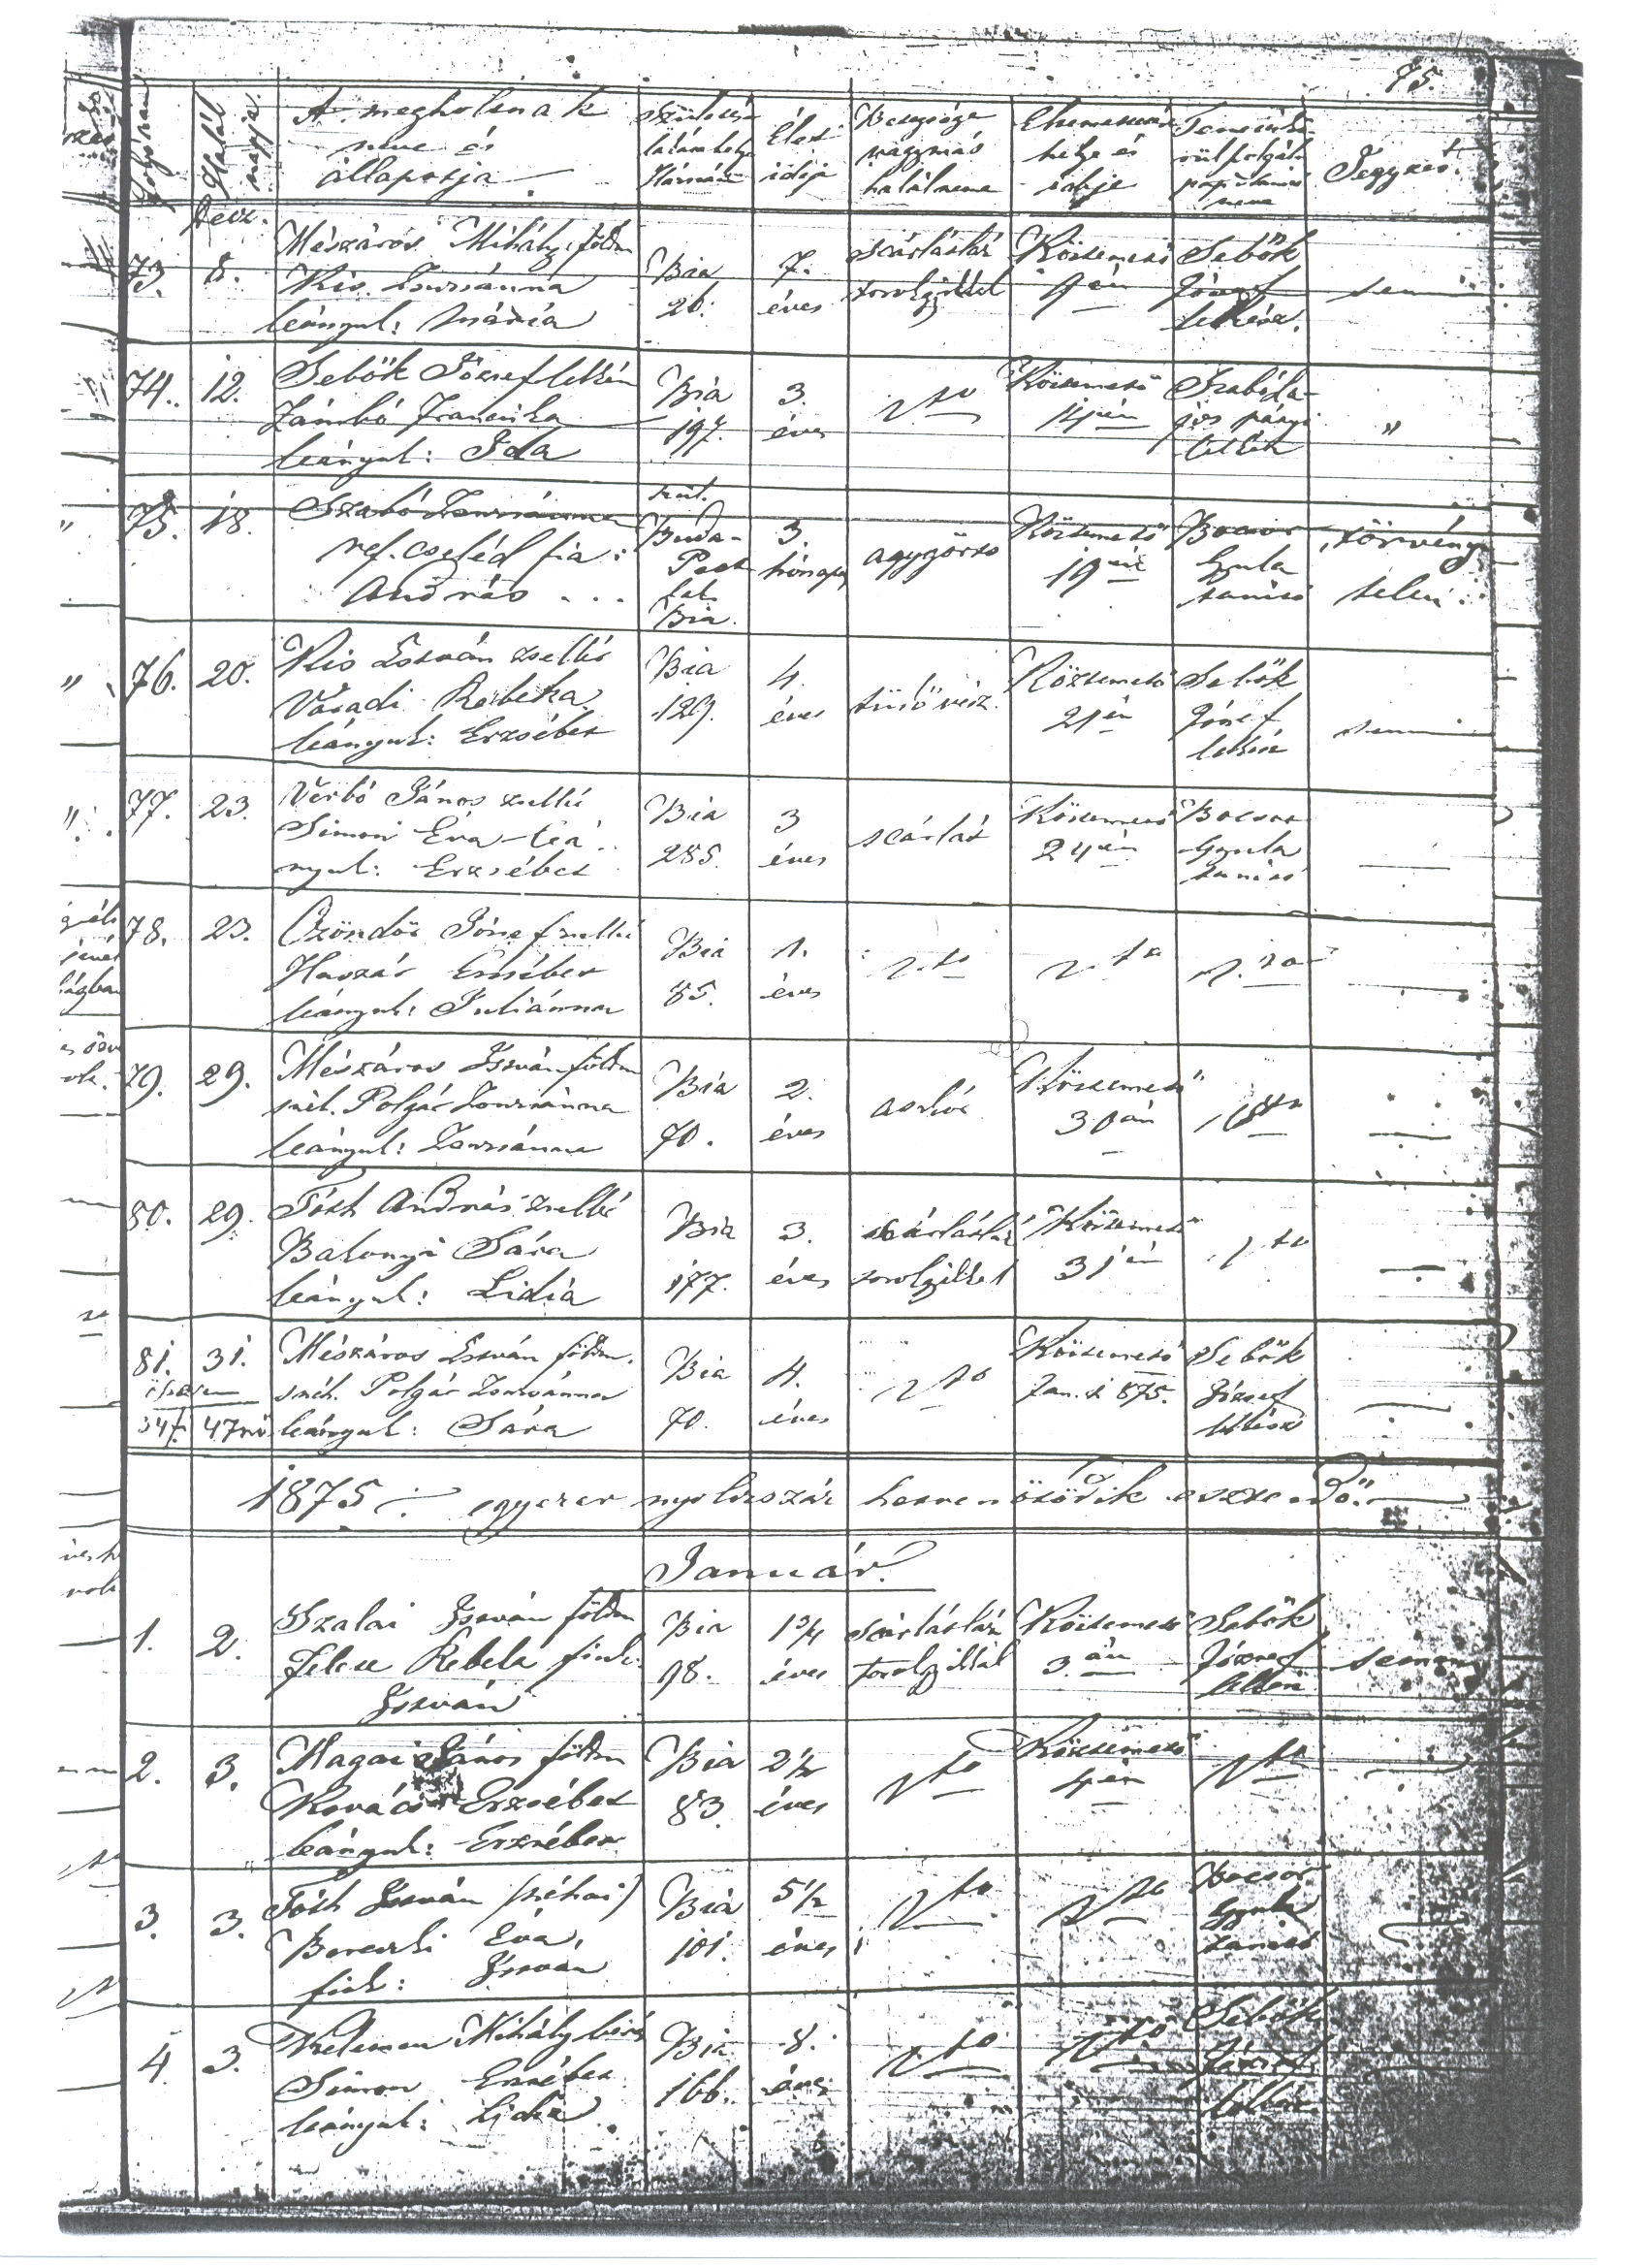 75.
Folyószám
Halál napja
A megholtnak neve és állapotja
Születési s halálozási hely Házszám
Élet ideje
Betegsége vagymás halálneme
Eltemettetés helye és ideje
Temetésre szolgált pap s tanitó neve
Jegyzet.
Decz.
73. 8. Mészáros Mihály földm
Kis Zsuzsánna
leányuk: Mária
Bia 26.
7. éves
skárlátláz torokgyikkel
Köztemető 9én
Sebők József lelkész.
semmi
74. 12. Sebők József lelkész
Zámbó Francziska
leányuk: Ida
Bia 197.
3. éves
dto
Köztemető 14én
Szabó Lajos pányi lelkész
"
75. 18. Szabó Zsuzsánna
ref. cseléd fia:
András ...
szül. Buda-Pest hal. Bia.
3. hónapos
agygörcs
Köztemető 19én
Bocsor Gyula tanitó
törvénytelen
76. 20. Kis István zsellér
Váradi Rebeka
leányuk: Erzsébet
Bia 129.
4. éves
tüdővész.
Köztemető 21én
Sebők József lelkész
semmi
77. 23. Verbó János zsellér
Simon Éva leá-
nyuk: Erzsébet
Bia 285.
3 éves
skárlát
Köztemető 24én
Bocsor Gyula tanitó
78. 23. Czöndör József zsellér
Huszár Erzsébet
leányuk: Juliánna
Bia 85.
1. éves
dto
dto
dto
79. 29. Mészáros István földm
néh. Polgár Zsuzsánna
leányuk: Zsuzsánna
Bia 70.
2. éves
Köztemető 30án
dto
80. 29. Tóth András zsellér
Batonyi Sára
leányuk: Lidia
Bia 177.
3. éves
skárlátláz torokgyikkel
Köztemető 31én
dto
81. 31. Mészáros István földm.
néh. Polgár Zsuzsánna
leányuk: Sára
Bia 70.
4. éves
dto
Köztemető Jan. 1 875.
Sebők József lelkész
34f. 47nő
1875 egyezer nyolczszáz hetvenötödik esztendő.
Január.
1. 2. Szalai István földm
Jelen Rebeka fiuk:
István
Bia 98.
1 3/4 éves
skárlátláz torokgyikkal
Köztemető 3.án
Sebők József lelkész
semmi
2. 3. Magai János földm
Kovács Erzsébet
leányuk: Erzsébet
Bia 83.
2 1/2 éves
dto
Köztemető 4én
dto
3. 3. Tóth István (néhai)
Bereczki Éva,
fiuk: István
Bia 101.
5 1/2 éves
dto
dto
Bocsor Gyula tanitó
4. 3. Kelemen Mihály bérés
Simon Erzsébet
leányuk: Lidia
Bia 166.
8. éves
dto
dto
Sebők József lelkész